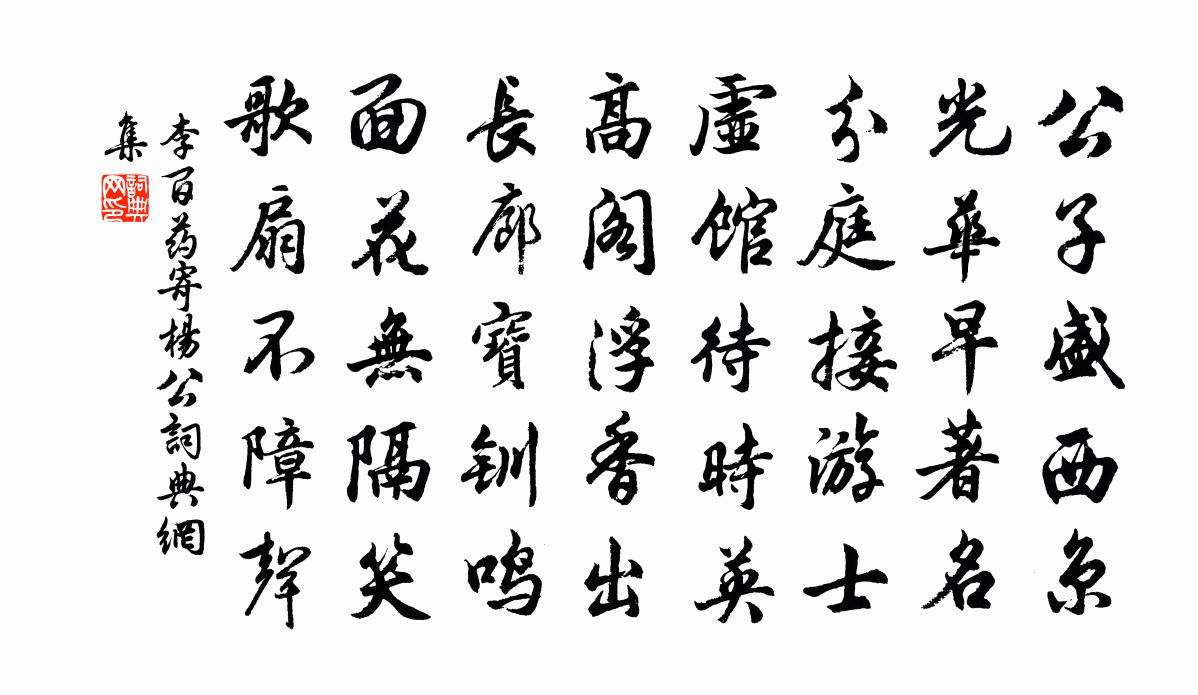 公子盛西京
光華早著名
分庭接游士
虛館待時英
高阁浮香出
長廊寶釧鸣
面花無隔笑
歌扇不障聲
李百药寄楊公詞典網
集
詞典
网印